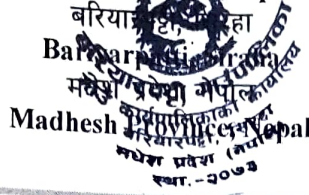 बरियारपट्टी, सिरहा
Bariyarpatti, Siraha
मधेश प्रदेश, नेपाल
Madhesh Province, Nepal
बरियारपट्टी गाउँपालिका
गाउँ कार्यपालिकाको कार्यालय
बरियारपट्टी, सिरहा
मधेश प्रदेश (नेपाल)
स्था.-२०७३